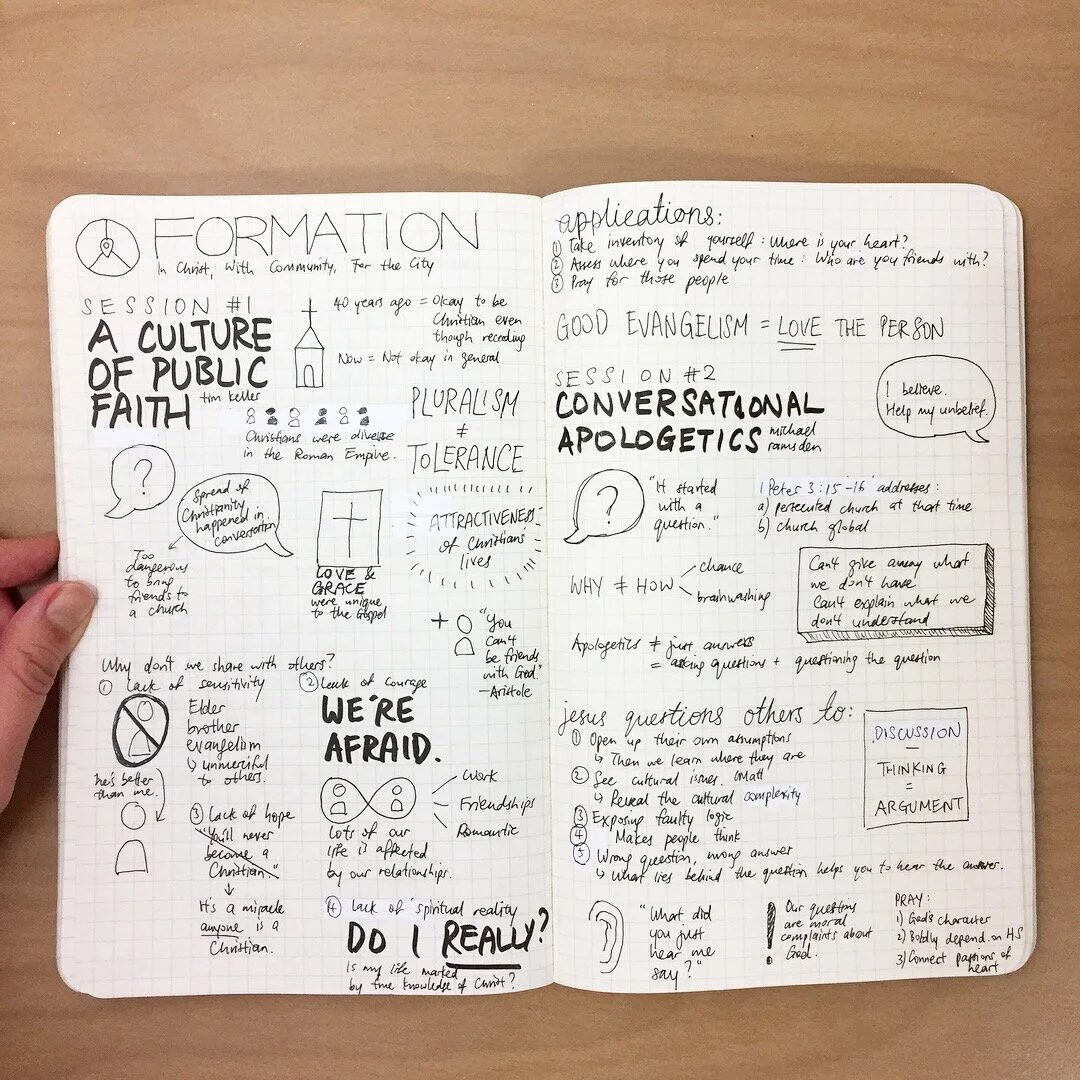 FORMATION
In Christ, With Community, For the City
SESSION #1
A CULTURE
OF PUBLIC
FAITH
tim keller
40 years ago = Okay to be
Christian even
though receding
Now = Not okay in general
Christians were diverse
in the Roman Empire.
PLURALISM
≠
TOLERANCE
?
Spread of
Christianity
happened in
conversation
Too
dangerous
to bring
friends to
a church
LOVE &
GRACE
were unique
to the Gospel
ATTRACTIVENESS
of Christians
lives
+
"You
can't
be friends
with God"
-Aristole
Why don't we share with others?
① Lack of sensitivity
Elder
brother
evangelism
↳ unmerciful
to others.
he's better
than me.
② Lack of courage
WE'RE
AFRAID.
Work
Friendships
Romantic
Lots of our
life is affected
by our relationships.
③ Lack of hope
"You'll never
become a
Christian."
↓
It's a miracle
anyone is a
Christian.
④ Lack of spiritual reality
DO I REALLY?
Is my life marked
by true knowledge of Christ?
applications:
① Take inventory of yourself: Where is your heart?
② Assess where you spend your time: Who are you friends with?
③ Pray for those people
GOOD EVANGELISM = LOVE THE PERSON
SESSION #2
CONVERSATIONAL
APOLOGETICS
michael
ramsden
I believe.
Help my unbelief.
?
"It started
with a
question."
1 Peter 3:15-16 addresses:
a) persecuted church at that time
b) church global
WHY ≠ HOW
chance
brainwashing
Can't give away what
we don't have
Can't explain what we
don't understand
Apologetics ≠ just answers
= asking questions + questioning the question
jesus questions others to:
① Open up their own assumptions
↳ Then we learn where they are
② See cultural issues. (Matt
↳ Reveal the cultural complexity
③ Exposing faulty logic
④ Makes people think
⑤ Wrong question, wrong answer
↳ What lies behind the question helps you to hear the answer.
DISCUSSION
—
THINKING
=
ARGUMENT
"What did
you just
hear me
say?"
!
Our questions
are moral
complaints about
God.
PRAY:
1) God's character
2) Boldly depend on HS
3) Connect passions of
heart